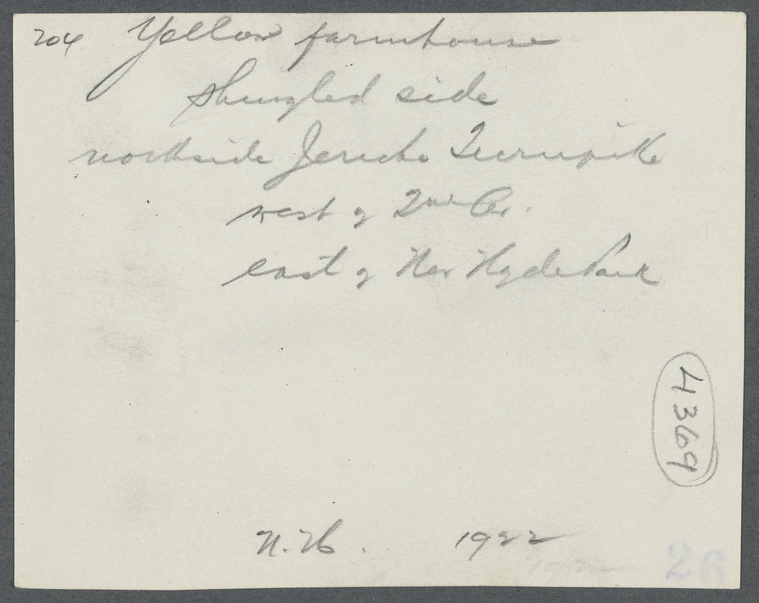 204 Yellow farmhouse
shingled side
northside Jericho Turnpike
west of 2nd Av.
east of New Hyde Park
4369
N.H. 1922
1922
26